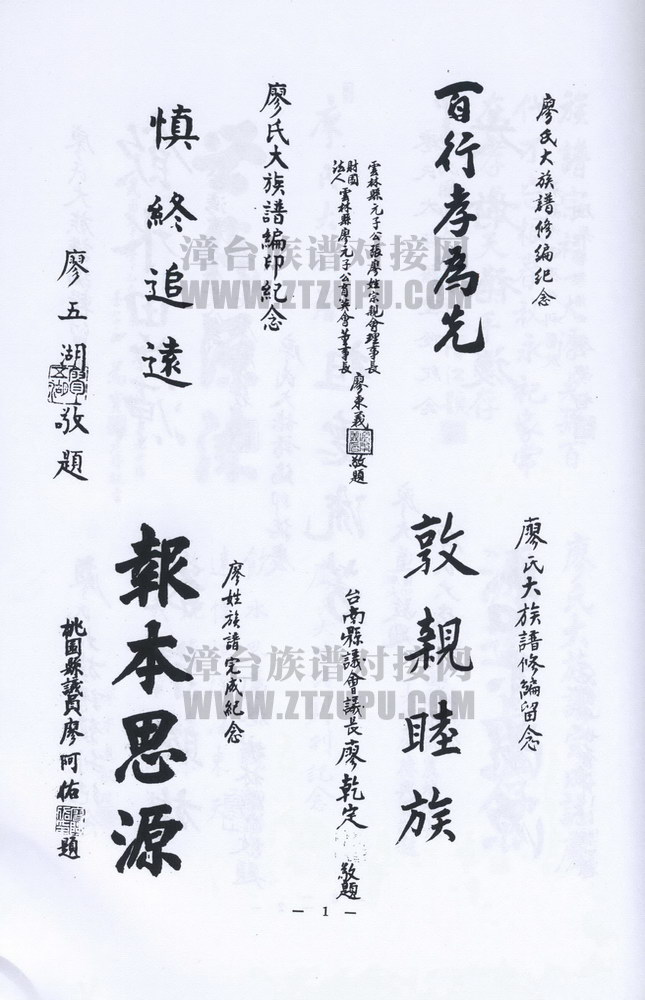 廖氏大族譜修編紀念
百行孝為先
雲林縣元子公張廖姓宗親會理事長
財團法人雲林縣廖元子公育英會董事長
廖東義敬題
廖氏大族譜編印紀念
慎終追遠
廖五湖敬題
廖氏大族譜修編留念
敦親睦族
台南縣議會議長廖乾定敬題
廖姓族譜完成紀念
報本思源
桃園縣議員廖阿佑題
漳台族谱对接网
WWW.ZTZUPU.COM
漳台族谱对接网
WWW.ZTZUPU.COM
— 1 —